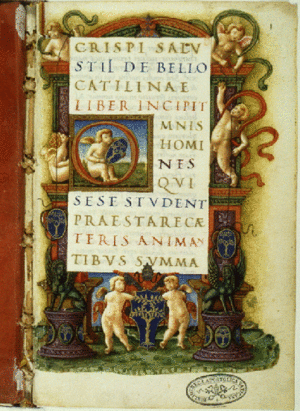 CRISPI SALV
STII DE BELLO
CATILINAE
LIBER INCIPIT
OMNIS
HOMI
NES
QVI
SESE STVDENT
PRAESTARE CÆ
TERIS ANIMAN
TIBVS SVMMA